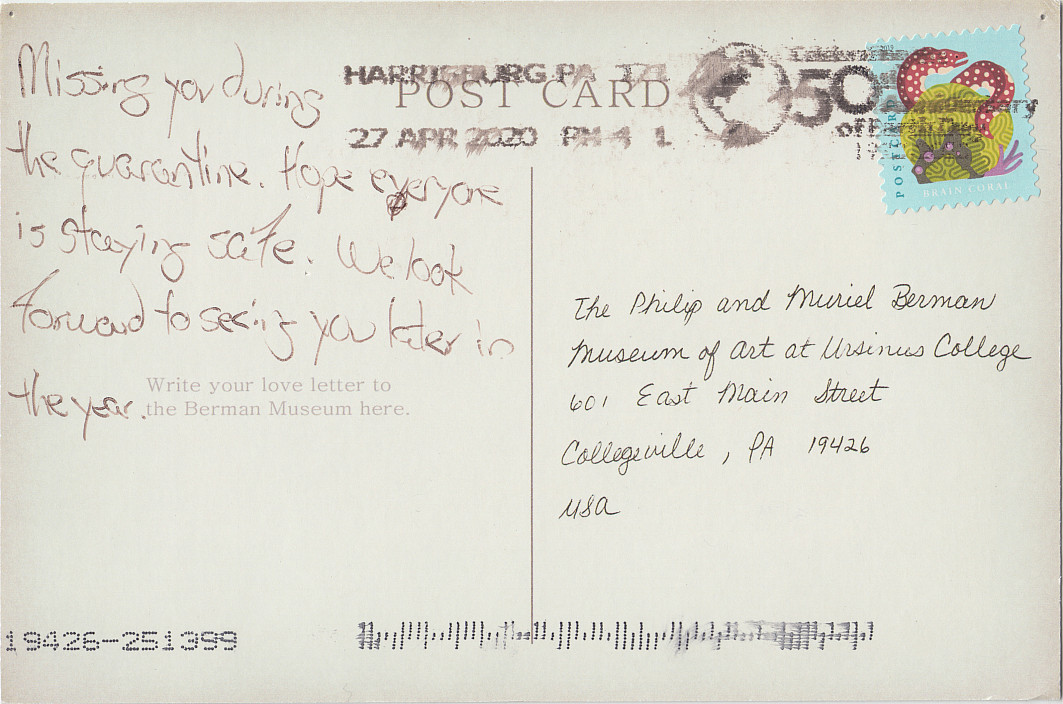 Missing you during
the quarantine. Hope everyone
is staying safe. We look
forward to seeing you later in
the year.
Write your love letter to
the Berman Museum here.
POST CARD
HARRISBURG PA 171
27 APR 2020 PM 4 L
50
POSTCARD
BRAIN CORAL
The Philip and Muriel Berman
Museum of Art at Ursinus College
601 East Main Street
Collegeville, PA 19426
USA
19426-251399